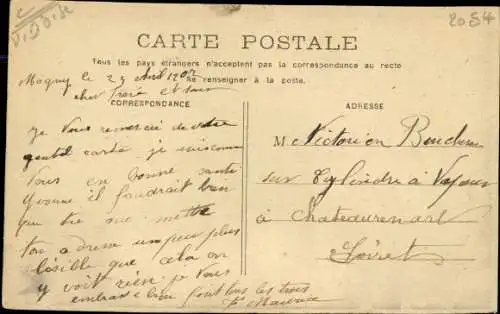 VIDOISE
2054
CARTE POSTALE
Tous les pays étrangers n'acceptent pas la correspondance au recto
Se renseigner à la poste.
Magny le 29 Avril 1907
cher Frère et sœur
CORRESPONDANCE
je vous remercie de votre
gentil carte je suis comme
Vous en bonne santé
Yvonne il faudrait bien
que tu me mette
ton adresse un peu plus
lisible que cela on
y voit rien je Vous
embrasse bien fort tous les trois
Maurice
ADRESSE
M Victorien
sur Cylindre à Vapeur
à Chateaurenard
Loiret